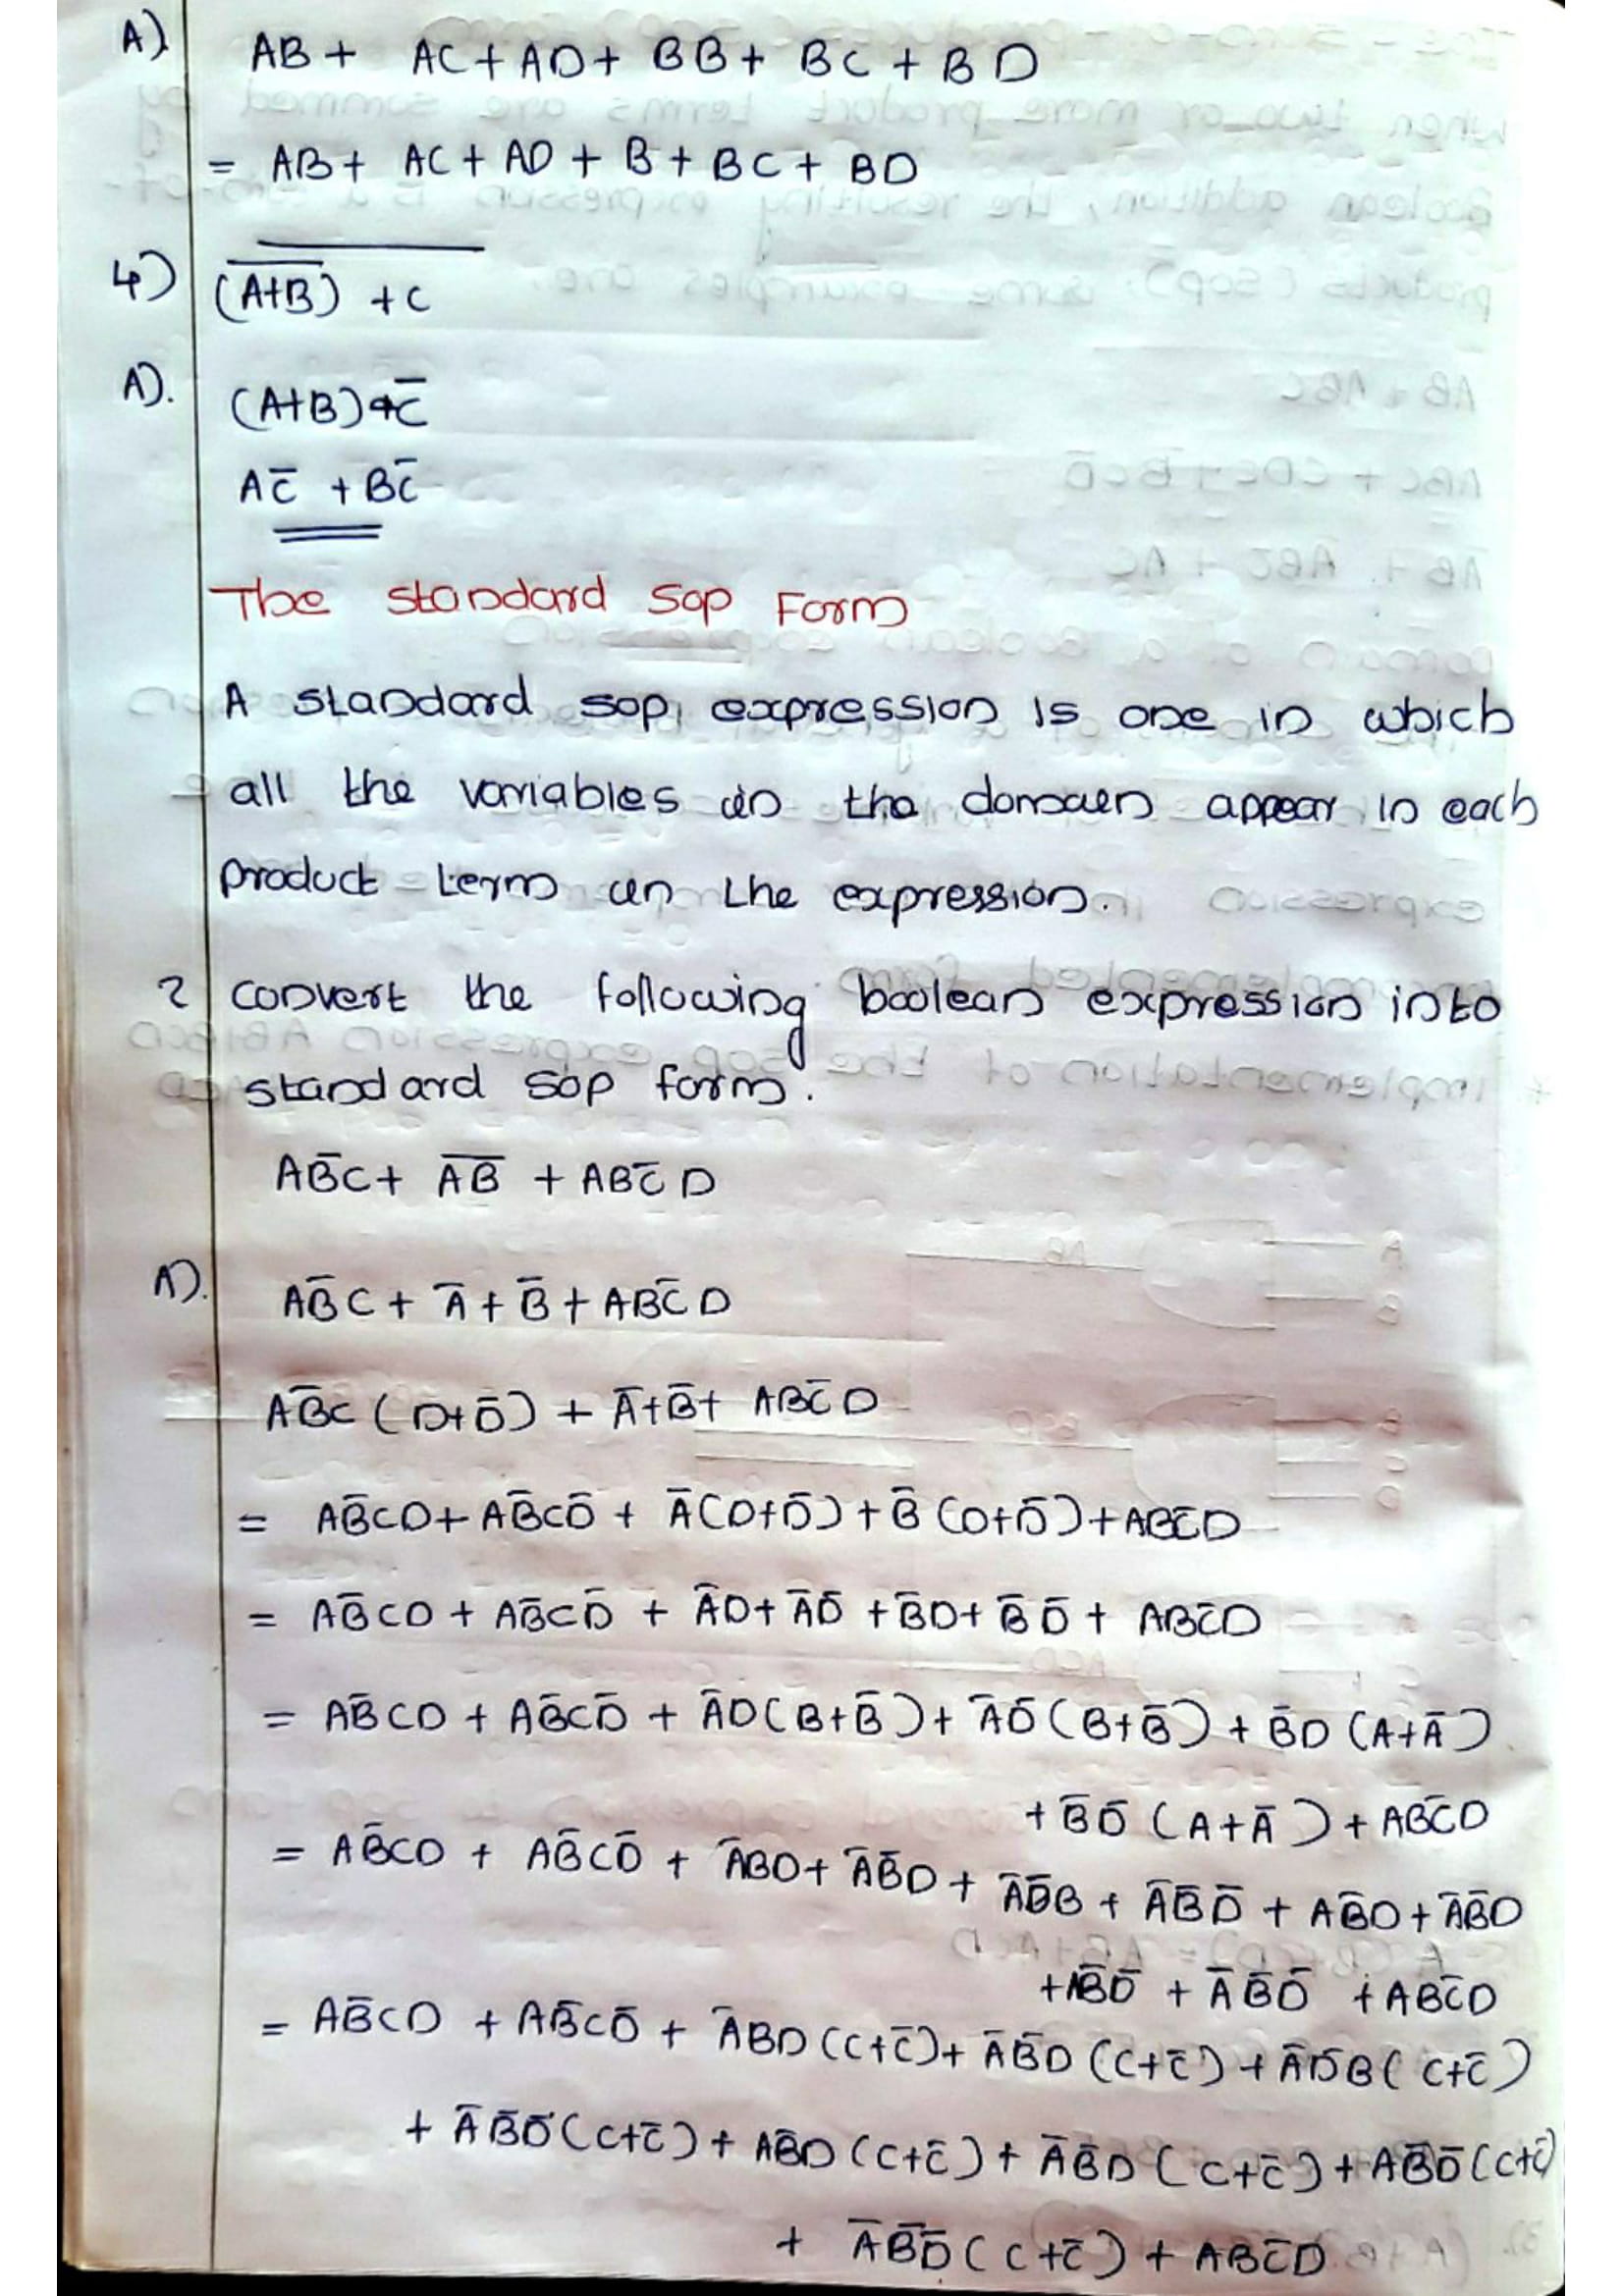 A) AB + AC + AD + BB + BC + BD
= AB + AC + AD + B + BC + BD
4) \overline{\overline{(A+B)} + C}
A). (A+B) C̅
AC̅ + BC̅
The standard SOP Form
A standard SOP expression is one in which
all the variables in the domain appear in each
product term in the expression.
? convert the following boolean expression into
standard SOP form.
AB̅C + \overline{AB} + ABC̅D
A). AB̅C + A̅ + B̅ + ABC̅D
AB̅C (D+D̅) + A̅+B̅+ ABC̅D
= AB̅CD + AB̅CD̅ + A̅(D+D̅) + B̅(D+D̅) + ABC̅D
= AB̅CD + AB̅CD̅ + A̅D + A̅D̅ + B̅D + B̅D̅ + ABC̅D
= AB̅CD + AB̅CD̅ + A̅D(B+B̅) + A̅D̅(B+B̅) + B̅D (A+A̅)
+ B̅D̅ (A+A̅) + ABC̅D
= AB̅CD + AB̅CD̅ + A̅BD + A̅B̅D + A̅D̅B + A̅B̅D̅ + AB̅D + A̅B̅D
+ AB̅D̅ + A̅B̅D̅ + ABC̅D
= AB̅CD + AB̅CD̅ + A̅BD (C+C̅) + A̅B̅D (C+C̅) + A̅D̅B (C+C̅)
+ A̅B̅D̅ (C+C̅) + AB̅D (C+C̅) + A̅B̅D (C+C̅) + AB̅D̅ (C+C̅)
+ A̅B̅D̅ (C+C̅) + ABC̅D